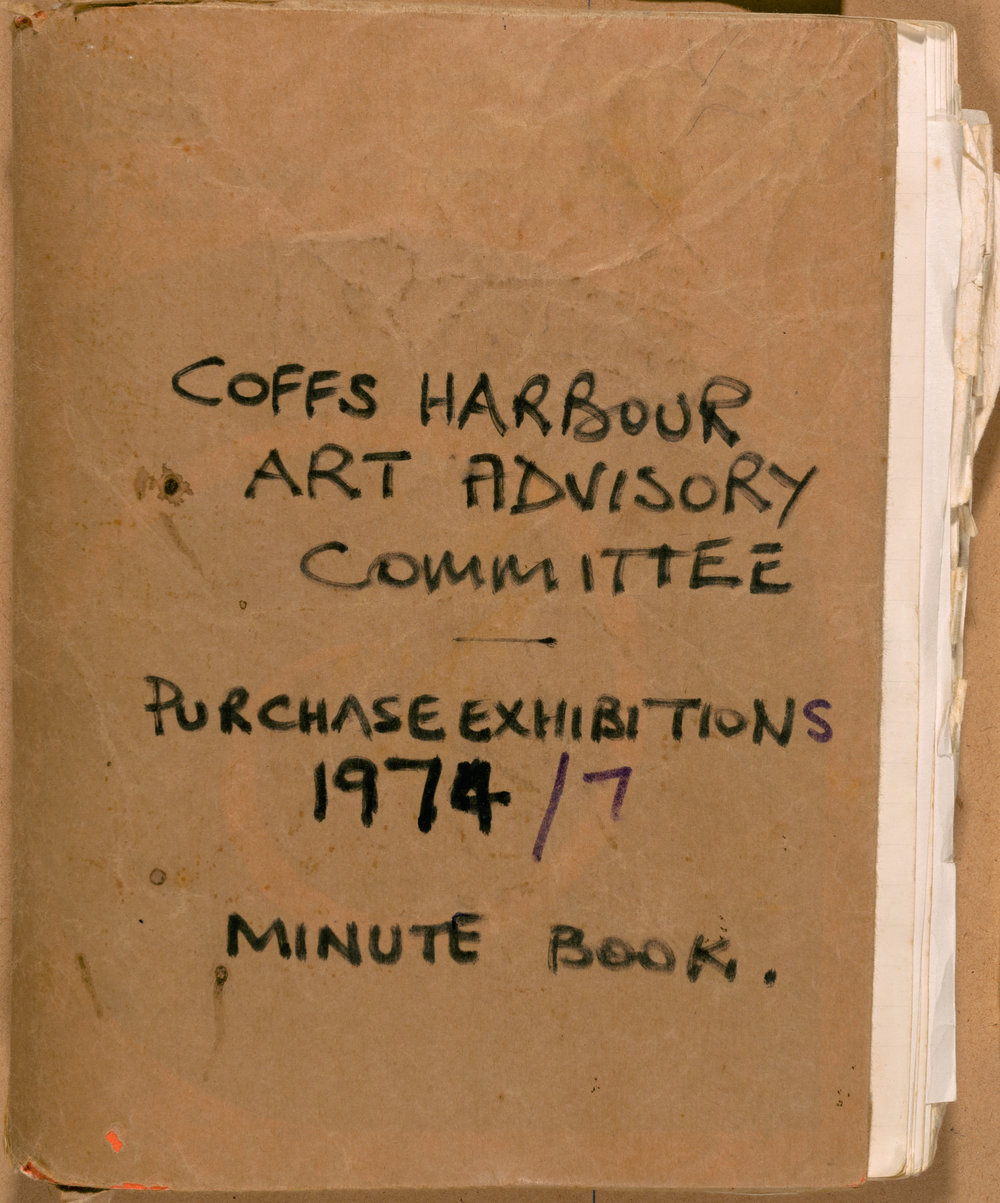 COFFS HARBOUR
ART ADVISORY
COMMITTEE
PURCHASE EXHIBITIONS
1974/7
MINUTE BOOK.